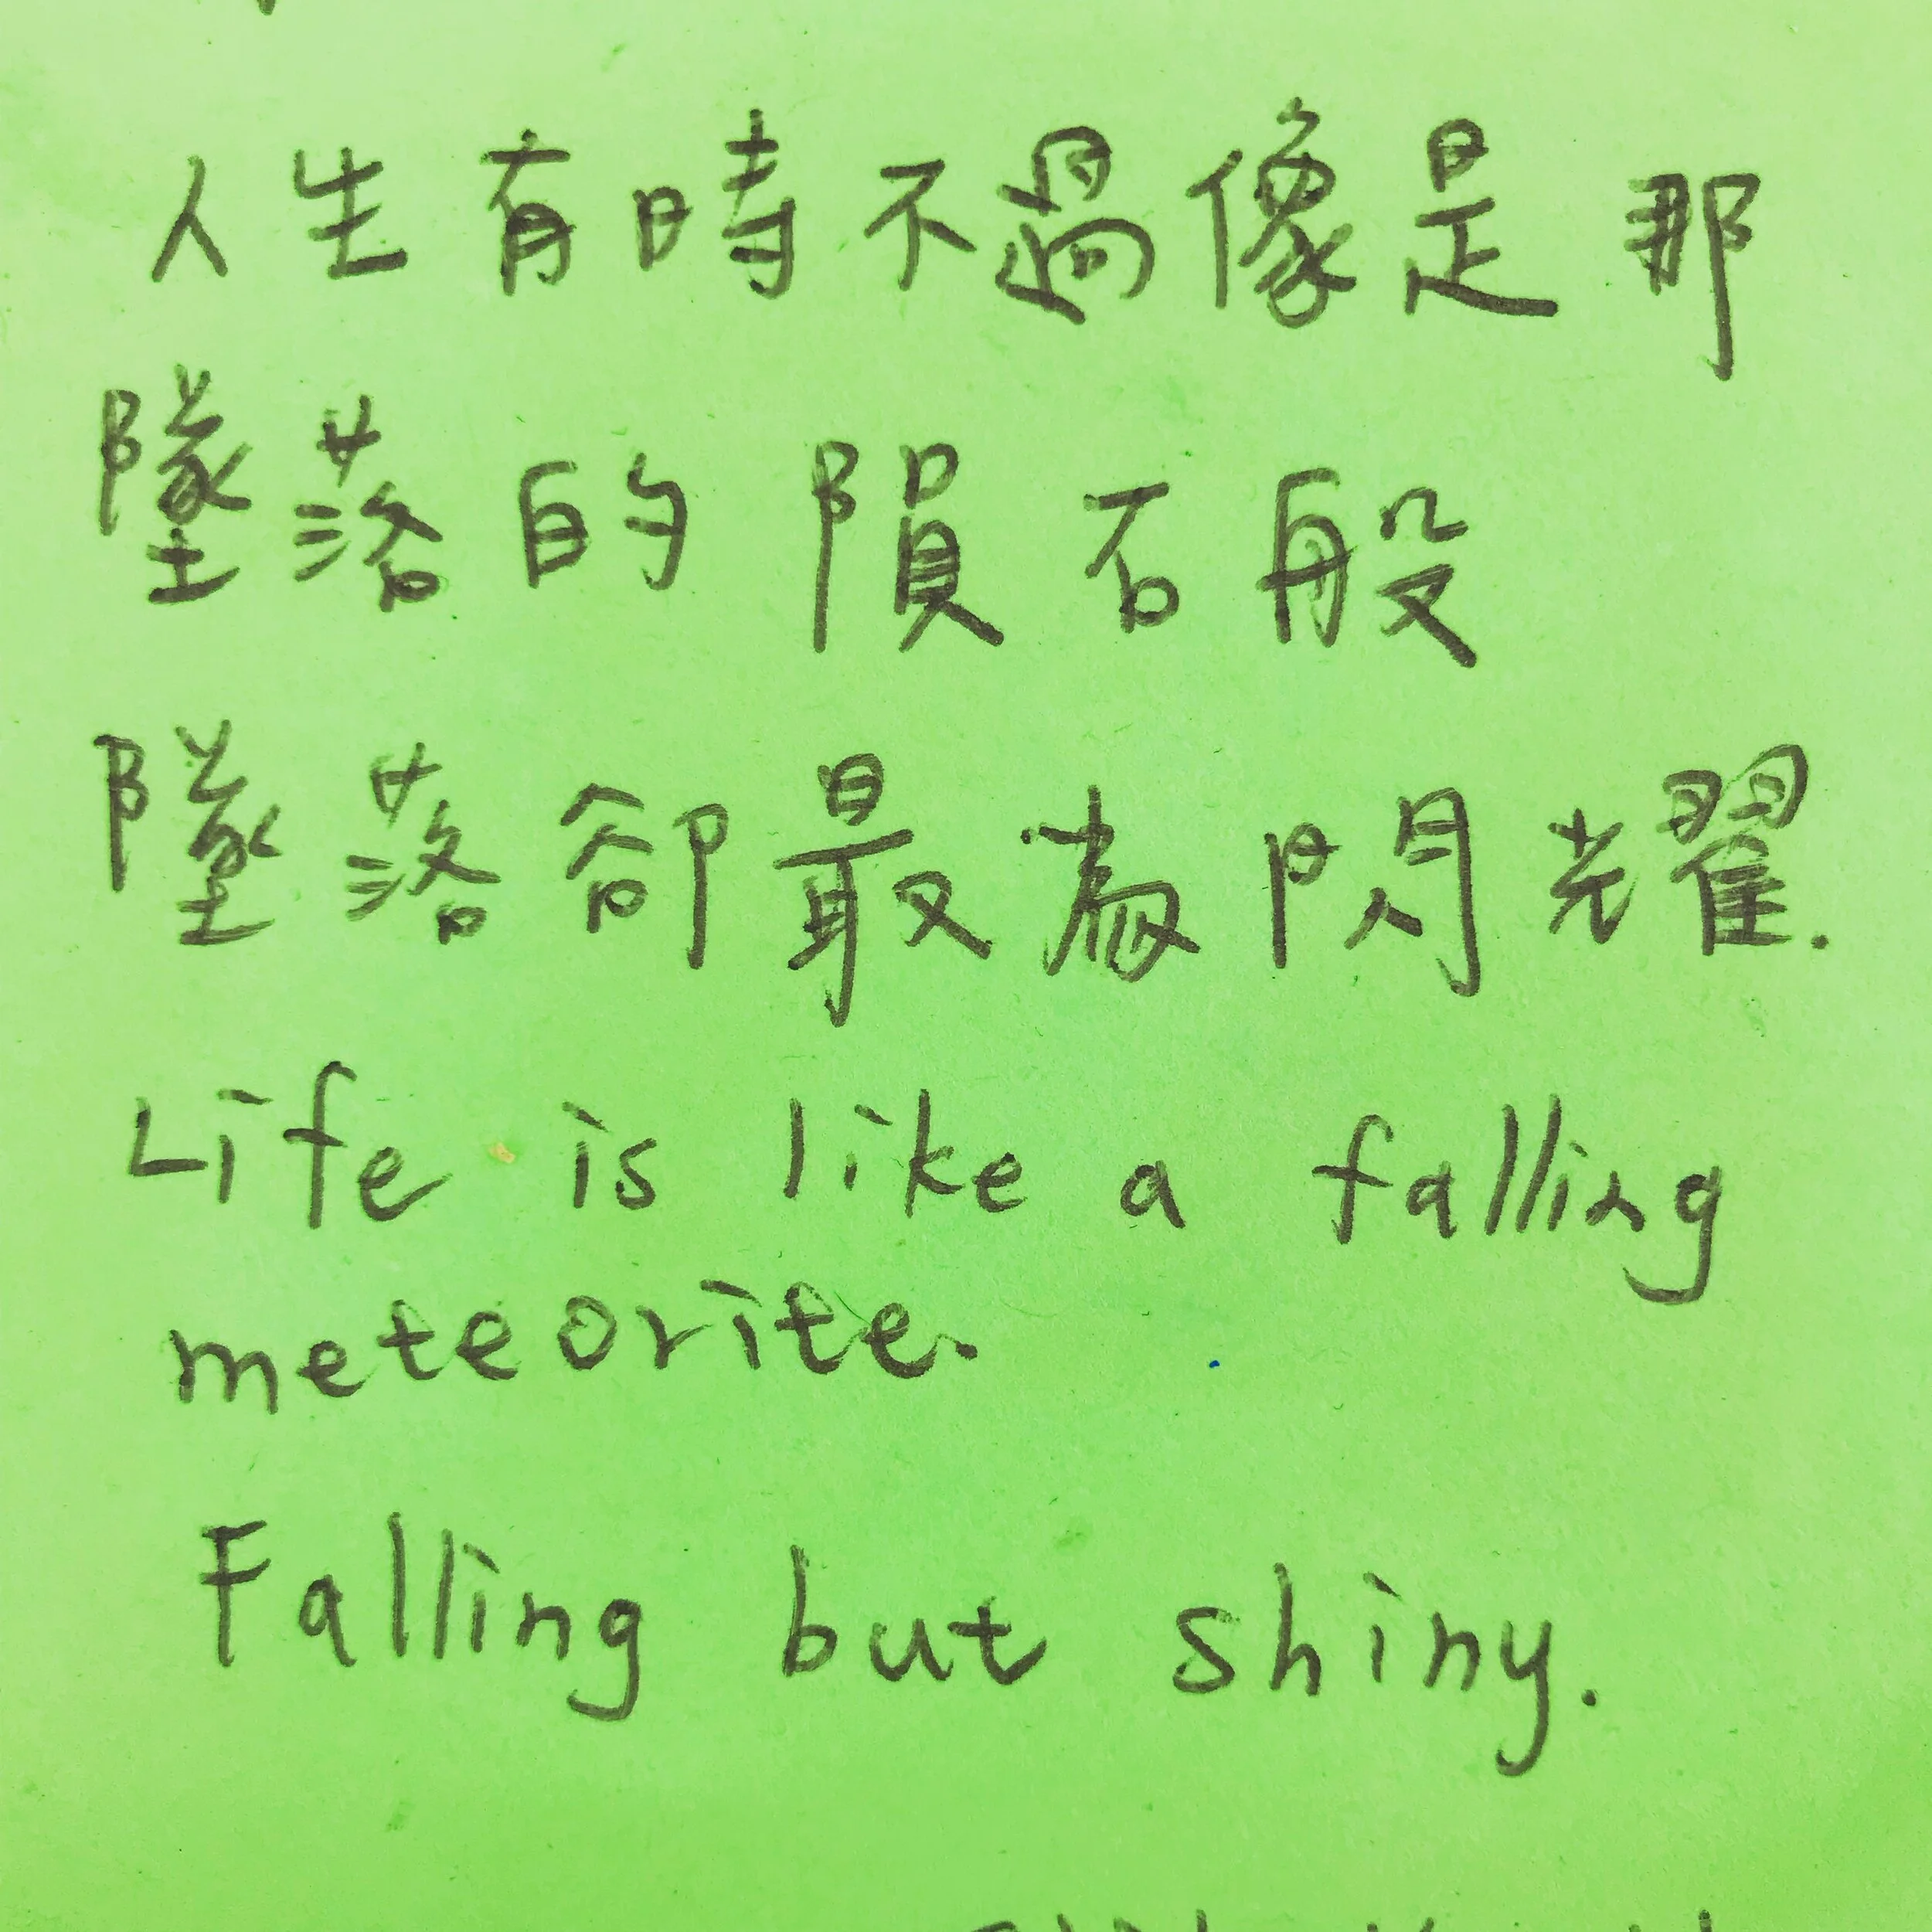 人生有時不過像是那
墜落的隕石般
墜落卻最為閃耀.
Life is like a falling
meteorite.
Falling but shiny.